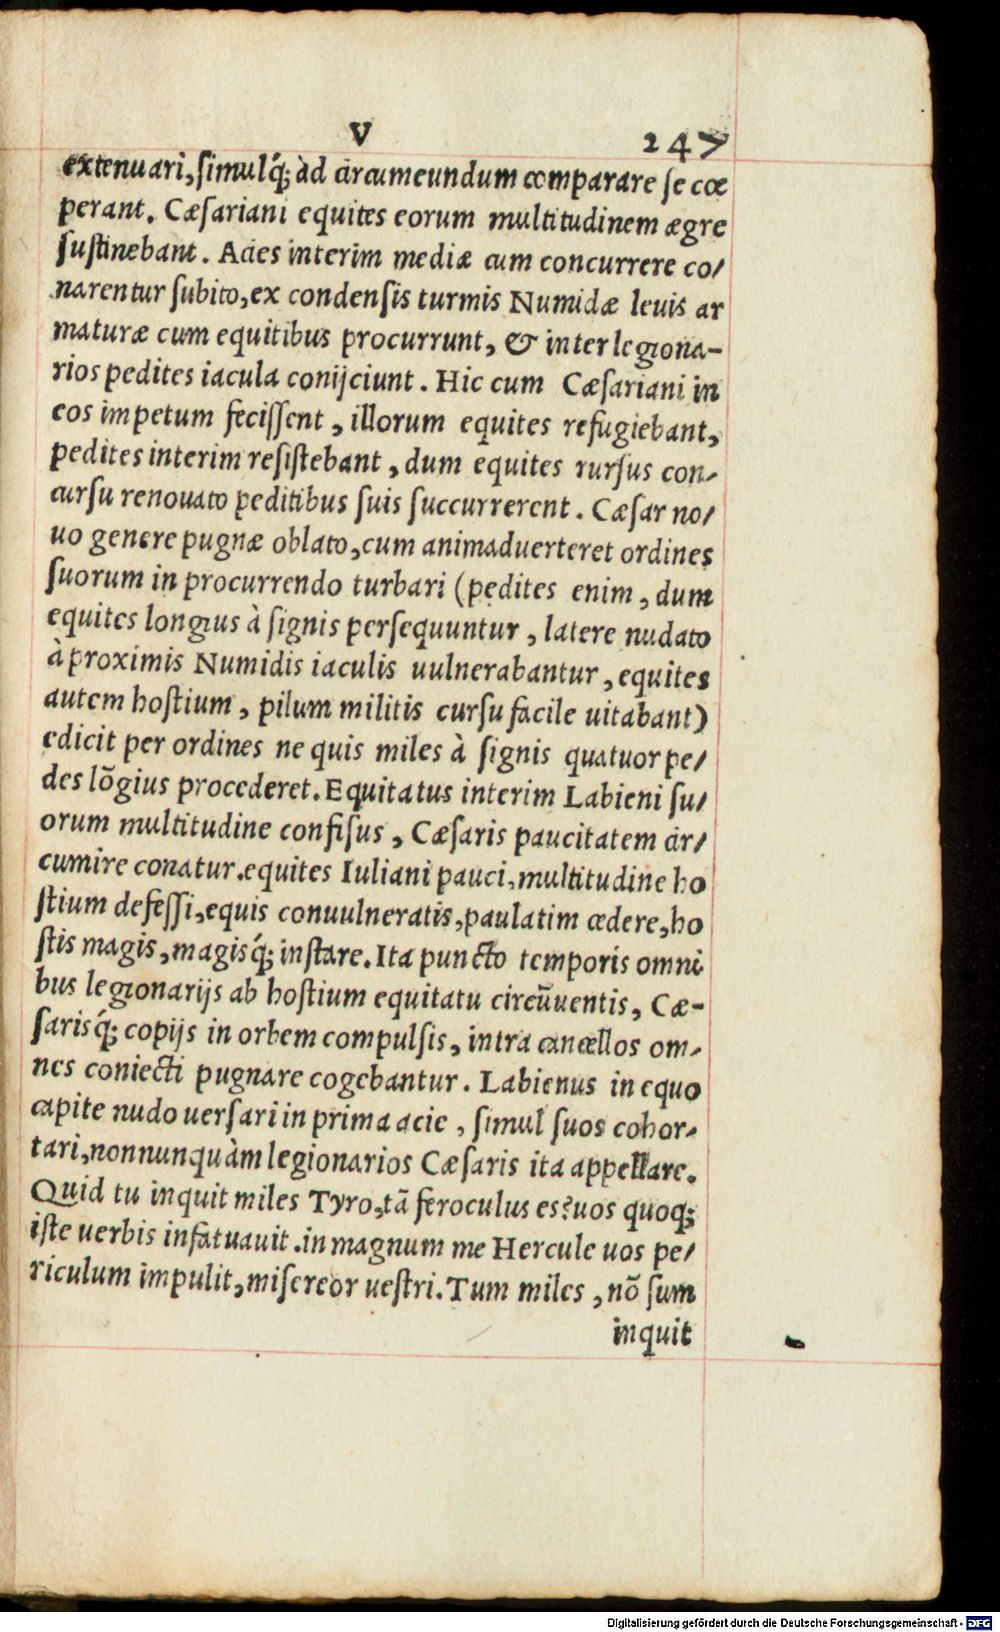 V 247
extenuari, simulq́; ad circumeundum comparare se cœ
perant. Cæsariani equites eorum multitudinem ægre
sustinebant. Acies interim mediæ cum concurrere co/
narentur subito, ex condensis turmis Numidæ leuis ar
maturæ cum equitibus procurrunt, & inter legiona-
rios pedites iacula conijciunt. Hic cum Cæsariani in
eos impetum fecissent, illorum equites refugiebant,
pedites interim resistebant, dum equites rursus con-
cursu renouato peditibus suis succurrerent. Cæsar no/
uo genere pugnæ oblato, cum animaduerteret ordines
suorum in procurrendo turbari (pedites enim, dum
equites longius à signis persequuntur, latere nudato
à proximis Numidis iaculis uulnerabantur, equites
autem hostium, pilum militis cursu facile uitabant)
edicit per ordines ne quis miles à signis quatuor pe/
des lõgius procederet. Equitatus interim Labieni su/
orum multitudine confisus, Cæsaris paucitatem cir/
cumire conatur. equites Iuliani pauci, multitudine ho
stium defessi, equis conuulneratis, paulatim cedere, ho
stis magis, magisq́; instare. Ita puncto temporis omni
bus legionarijs ab hostium equitatu circũuentis, Cæ-
sarisq́; copijs in orbem compulsis, intra cancellos om-
nes coniecti pugnare cogebantur. Labienus in equo
capite nudo uersari in prima acie, simul suos cohor-
tari, nonnunquàm legionarios Cæsaris ita appellare.
Quid tu inquit miles Tyro, tã feroculus es? uos quoq;
iste uerbis infatuauit. in magnum me Hercule uos pe/
riculum impulit, misereor uestri. Tum miles, nõ sum
inquit
Digitalisierung gefördert durch die Deutsche Forschungsgemeinschaft - DFG